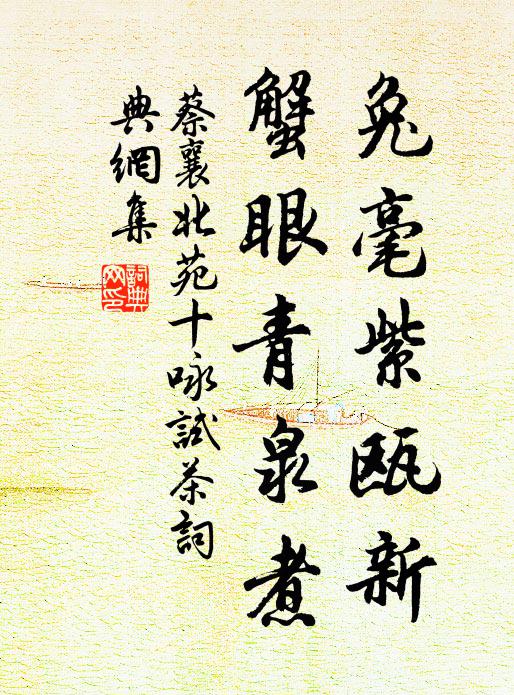 兔毫紫瓯新
蟹眼青泉煮
蔡襄北苑十咏試茶詞
典網集
詞典网印